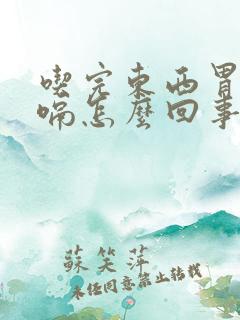 喫完東西胃
喘怎麼回事
蘇笑萍
未経同意禁止转载